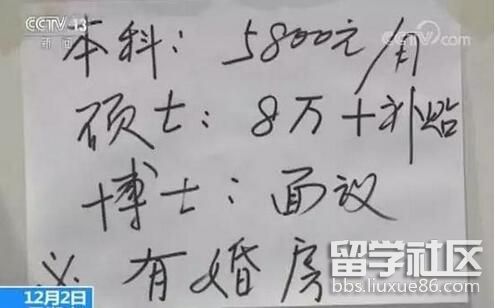 CCTV 13
新闻
CCTV.com
本科：5800元/月
硕士：8万+补贴
博士：面议
有婚房
12月2日
留学社区
bbs.liuxue86.com